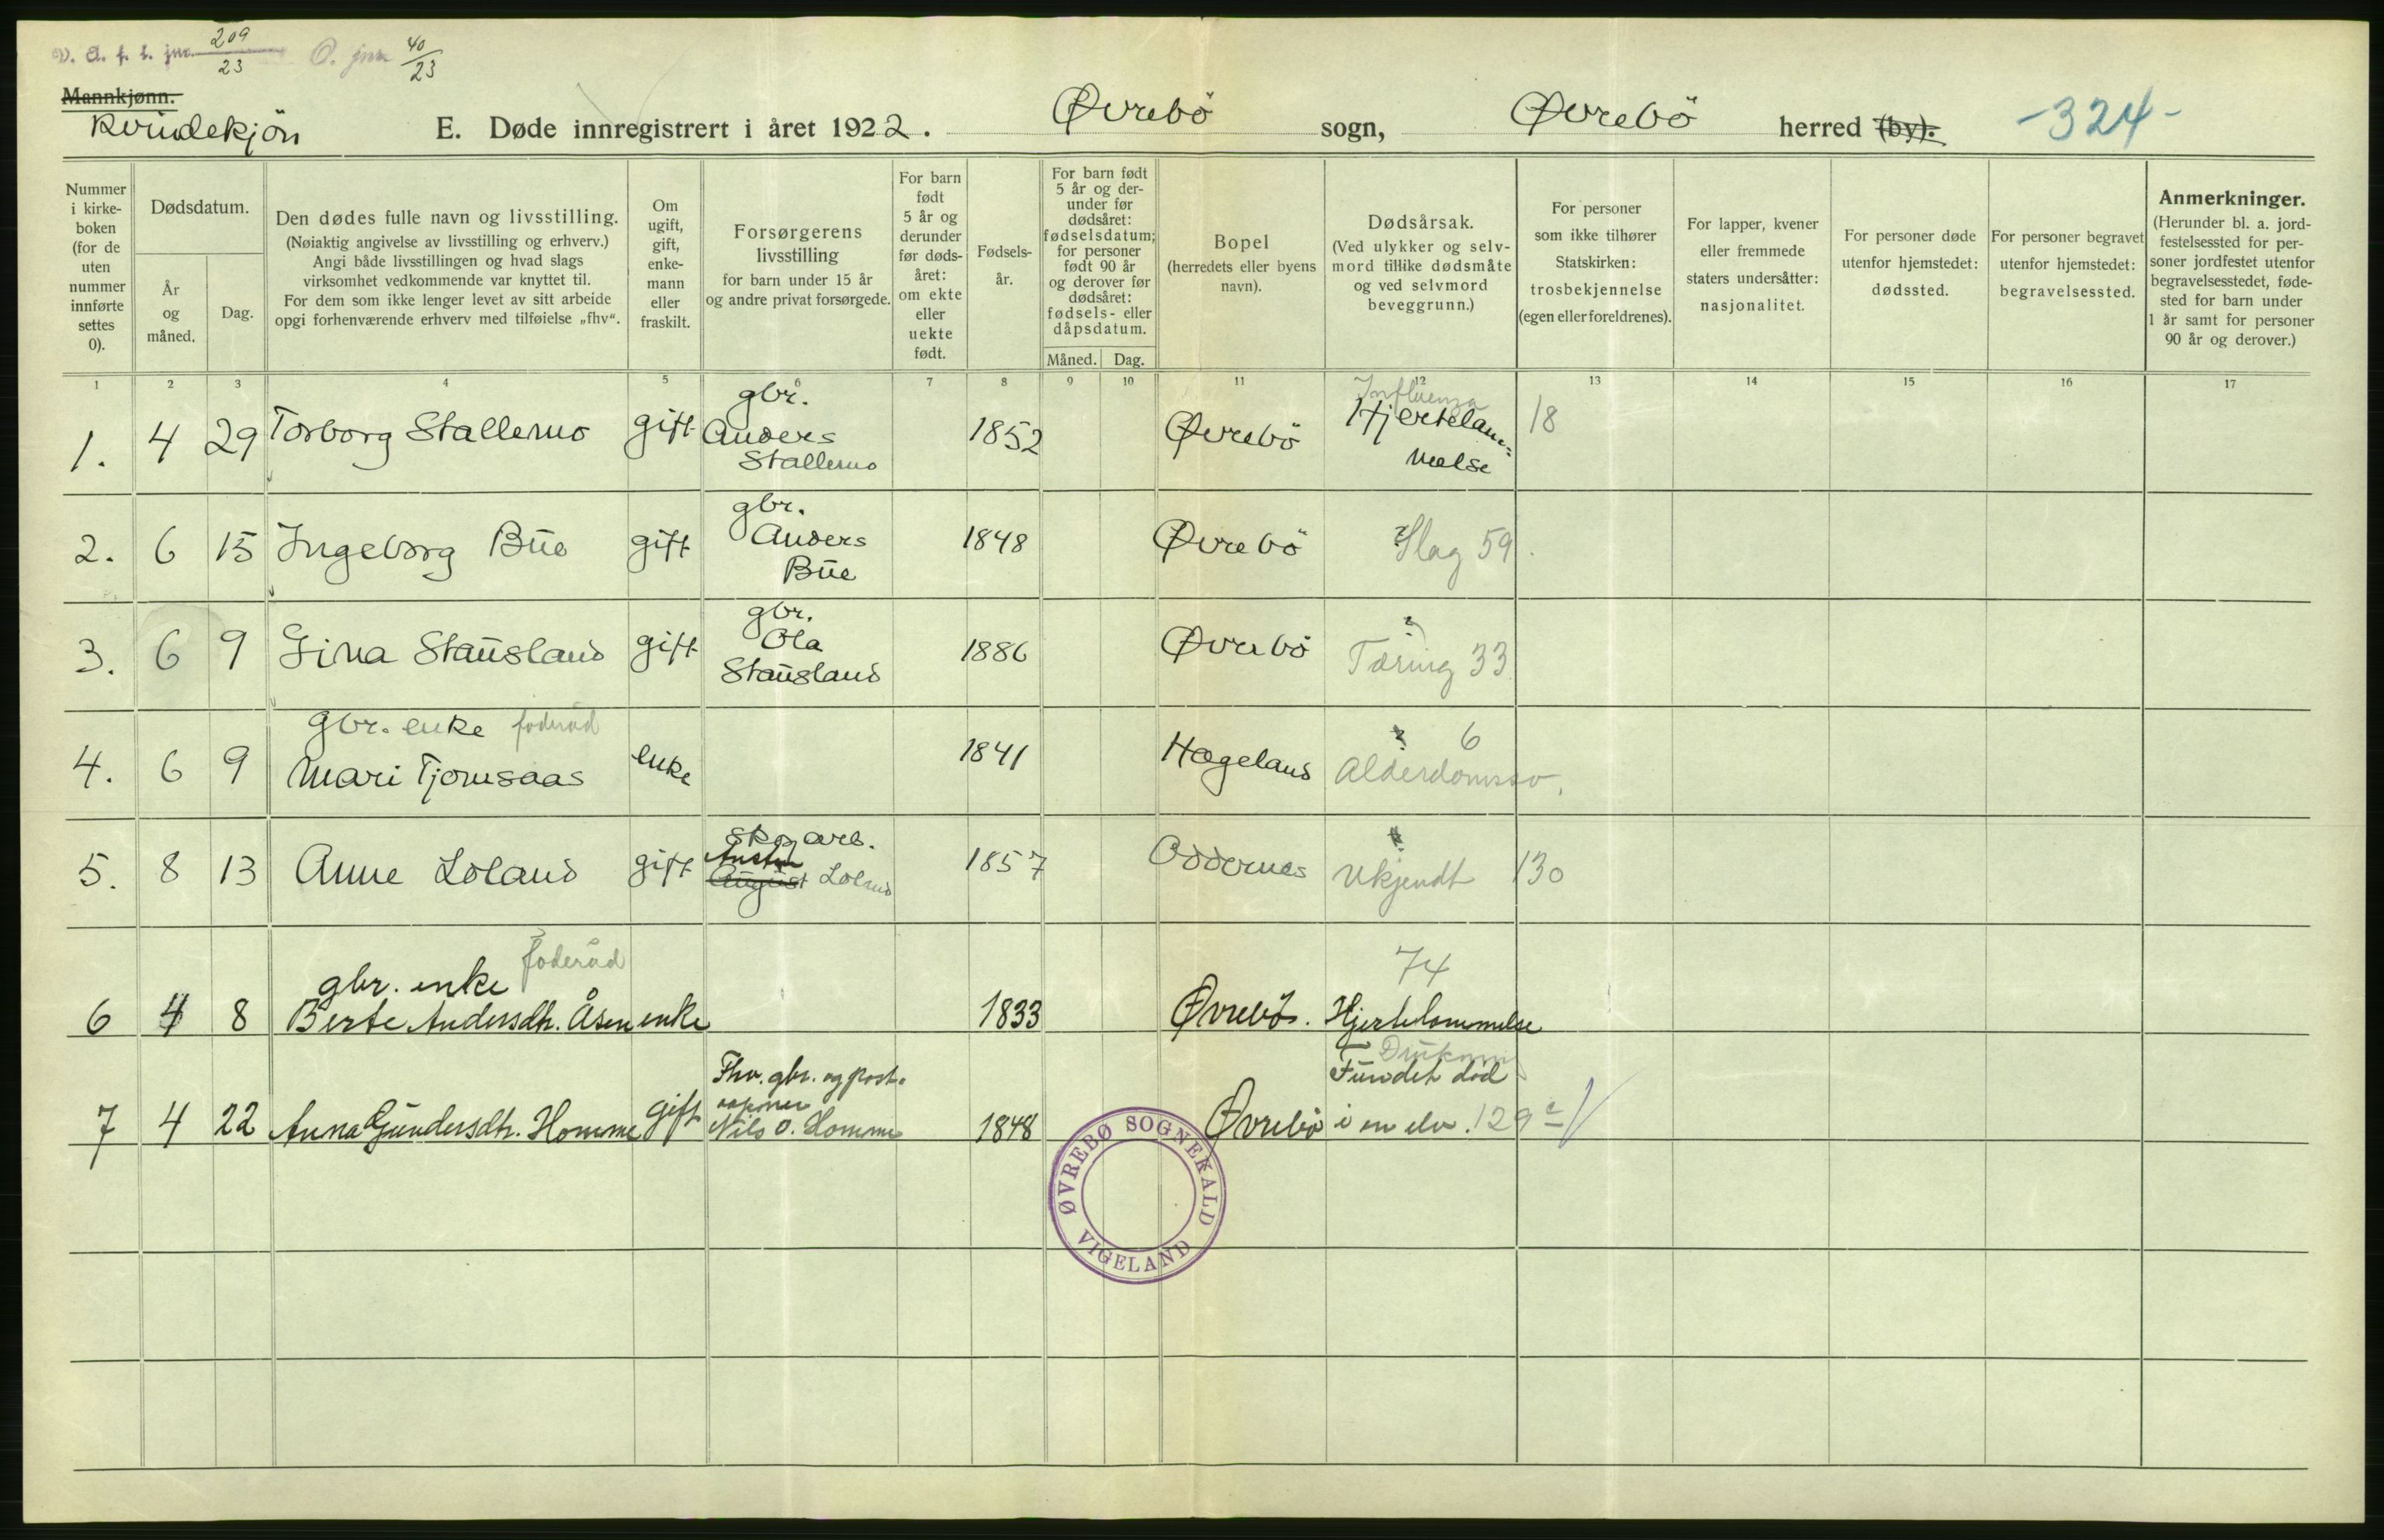 D. A. f. L. jnr. 209/23 O. jnr 40/23
Mannkjønn.
Kvindekjön
E. Døde innregistrert i året 1922. Øvrebö sogn, Øvrebö herred (by). -324-
Nummer i kirke-boken (for de uten nummer innførte settes 0).
Dødsdatum.
År og måned.
Dag.
Den dødes fulle navn og livsstilling.
(Nøiaktig angivelse av livsstilling og erhverv.)
Angi både livsstillingen og hvad slags
virksomhet vedkommende var knyttet til.
For dem som ikke lenger levet av sitt arbeide
opgi forhenværende erhverv med tilføielse „fhv“.
Om ugift, gift, enke-mann eller fraskilt.
Forsørgerens
livsstilling
for barn under 15 år
og andre privat forsørgede.
For barn født 5 år og derunder før døds-året: om ekte eller uekte født.
Fødsels-år.
For barn født 5 år og der-under før dødsåret: fødselsdatum; for personer født 90 år og derover før dødsåret: fødsels- eller dåpsdatum.
Måned. Dag.
Bopel
(herredets eller byens navn).
Dødsårsak.
(Ved ulykker og selv-mord tillike dødsmåte og ved selvmord beveggrunn.)
For personer som ikke tilhører Statskirken: trosbekjennelse (egen eller foreldrenes).
For lapper, kvener eller fremmede staters undersåtter: nasjonalitet.
For personer døde utenfor hjemstedet: dødssted.
For personer begravet utenfor hjemstedet: begravelsessted.
Anmerkninger.
(Herunder bl. a. jord-festelsessted for per-soner jordfestet utenfor begravelsesstedet, føde-sted for barn under 1 år samt for personer 90 år og derover.)
1 2 3 4 5 6 7 8 9 10 11 12 13 14 15 16 17
1. 4 29 Torborg Stallemo gift gbr. Anders Stallemo 1852 Øvrebö Influenza Hjertelam=melse 18
2. 6 15 Ingeborg Büe gift gbr. Anders Büe 1848 Øvrebö ? Slag 59
3. 6 9 Gina Stausland gift gbr. Ola Stausland 1886 Øvrebö ? Tæring 33
4. 6 9 gbr. enke foderåd Mari Tjomsaas enke 1841 Hægeland ? 6 Alderdomssv.
5. 8 13 Anne Loland gift skogarb. August Loland 1857 Oddernes Ukjendt 130
6 4 8 gbr. enke foderåd Berte Andersdtr. Åsen enke 1833 Øvrebö. 74 Hjertelammelse
7 4 22 Anna Gundersdtr. Homme gift Fhv. gbr. og post- Nils O. Homme 1848 Øvrebö Fundet död i en elv. 129
ØVREBØ SOGNEKALD
VIGELAND